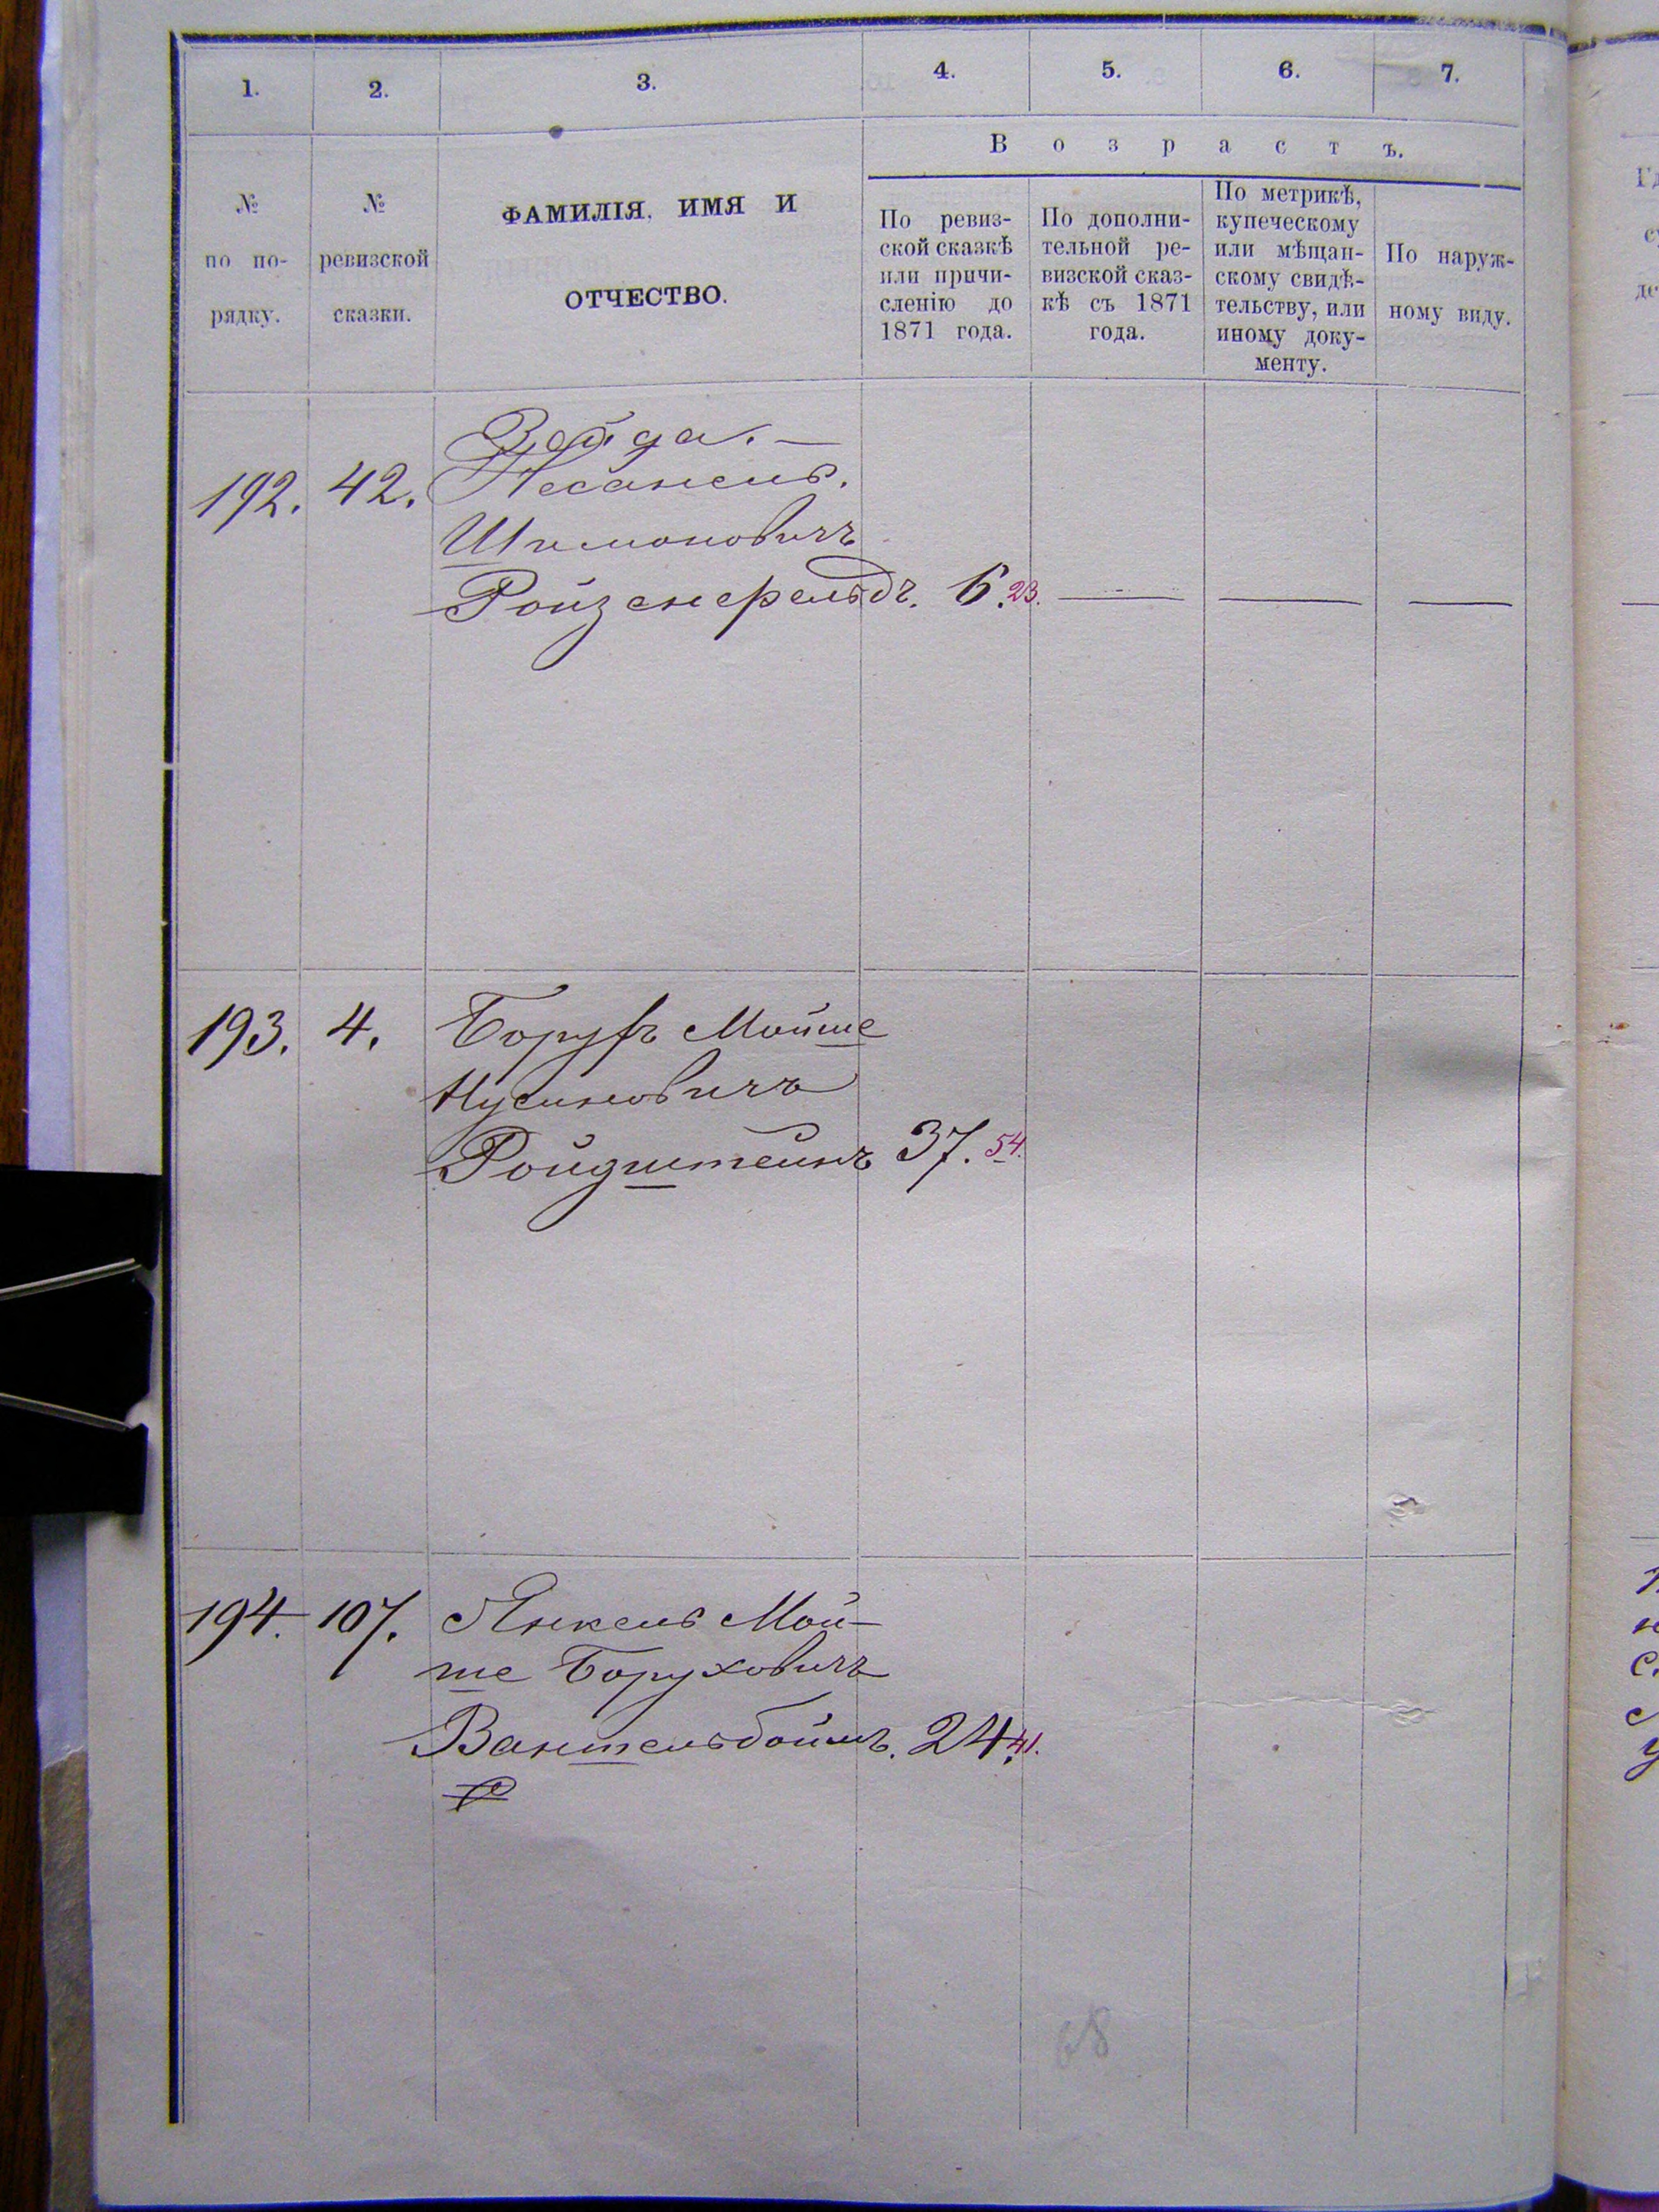 1. 2. 3. 4. 5. 6. 7.
В о з р а с т ъ.
№ по по-рядку.
№ ревизской сказки.
ФАМИЛІЯ, ИМЯ И
ОТЧЕСТВО.
По ревиз-
ской сказкѣ
или причи-
сленію до
1871 года.
По дополни-
тельной ре-
визской сказ-
кѣ съ 1871
года.
По метрикѣ,
купеческому
или мѣщан-
скому свидѣ-
тельству, или
иному доку-
менту.
По наруж-
ному виду.
Зейда. —
192. 42. Несанель.
Шимоновичъ
Ройзенфельдъ. 6. 23. — — —
193. 4. Борухъ Мойше
Нусиновичъ
Ройдштейнъ 37. 54.
194. 107. Янкель Мой-
ше Боруховичъ
Ванштельбоймъ. 24. 41.
68